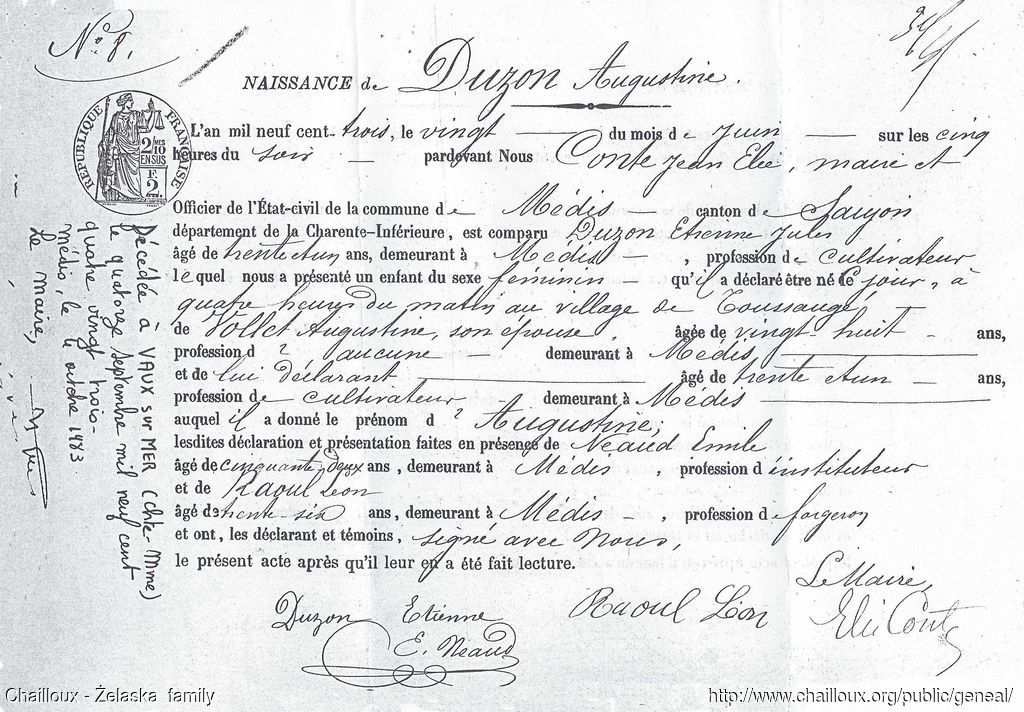 N° 8.
NAISSANCE de Duzon Augustine.
RÉPUBLIQUE FRANÇAISE
2 MES
10
EN SUS
2 F.
L'an mil neuf cent-trois, le vingt du mois de Juin sur les cinq
heures du soir pardevant Nous Conte Jean Elie, maire et
Officier de l'État-civil de la commune de Médis canton de Saujon
département de la Charente-Inférieure, est comparu Duzon Etienne Jules
âgé de trente et un ans, demeurant à Médis, profession de cultivateur
lequel nous a présenté un enfant du sexe féminin qu'il a déclaré être né ce jour, à
quatre heures du matin au village de Toussaugé
de Vollet Augustine, son épouse, âgée de vingt huit ans,
profession d'aucune demeurant à Médis
et de lui déclarant âgé de trente et un ans,
profession de cultivateur demeurant à Médis
auquel il a donné le prénom d'Augustine,
lesdites déclaration et présentation faites en présence de Neaud Emile
âgé de cinquante deux ans, demeurant à Médis, profession d'instituteur
et de Raoul Léon
âgé de trente-six ans, demeurant à Médis, profession de forgeron
et ont, les déclarant et témoins, signé avec Nous,
le présent acte après qu'il leur en a été fait lecture.
Le Maire,
Duzon Etienne
E. Neaud
Raoul Léon
Elie Conte
Décédée à VAUX sur MER (chte-Mme)
le quatorze septembre mil neuf cent
quatre vingt trois-
médis, le octobre 1983
Le maire,
Chailloux - Żelaska family
http://www.chailloux.org/public/geneal/